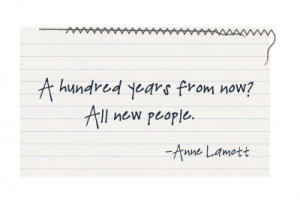 A hundred years from now?
All new people.
-Anne Lamott